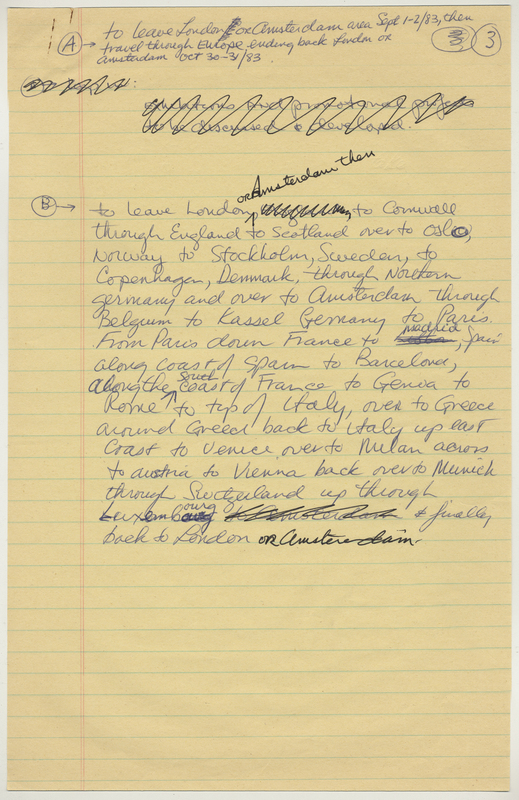 to leave London or Amsterdam area Sept 1-2/83, then
A → travel through Europe ending back London or
Amsterdam Oct 30-31/83.
3
to be discussed & developed.
or Amsterdam then
B → to leave London, to Cornwall
through England to Scotland over to Oslo,
Norway to Stockholm, Sweden, to
Copenhagen, Denmark, through Northern
Germany and over to Amsterdam through
Belgium to Kassel Germany to Paris.
From Paris down France to madrid, Spain
along coast of Spain to Barcelona,
along the South coast of France to Genoa to
Rome ↑ to tip of Italy, over to Greece
around Greece back to Italy up east
Coast to Venice over to Milan across
to austria to Vienna back over to Munich
through Switzerland up through
Luxembourg & finally
back to London or Amsterdam.